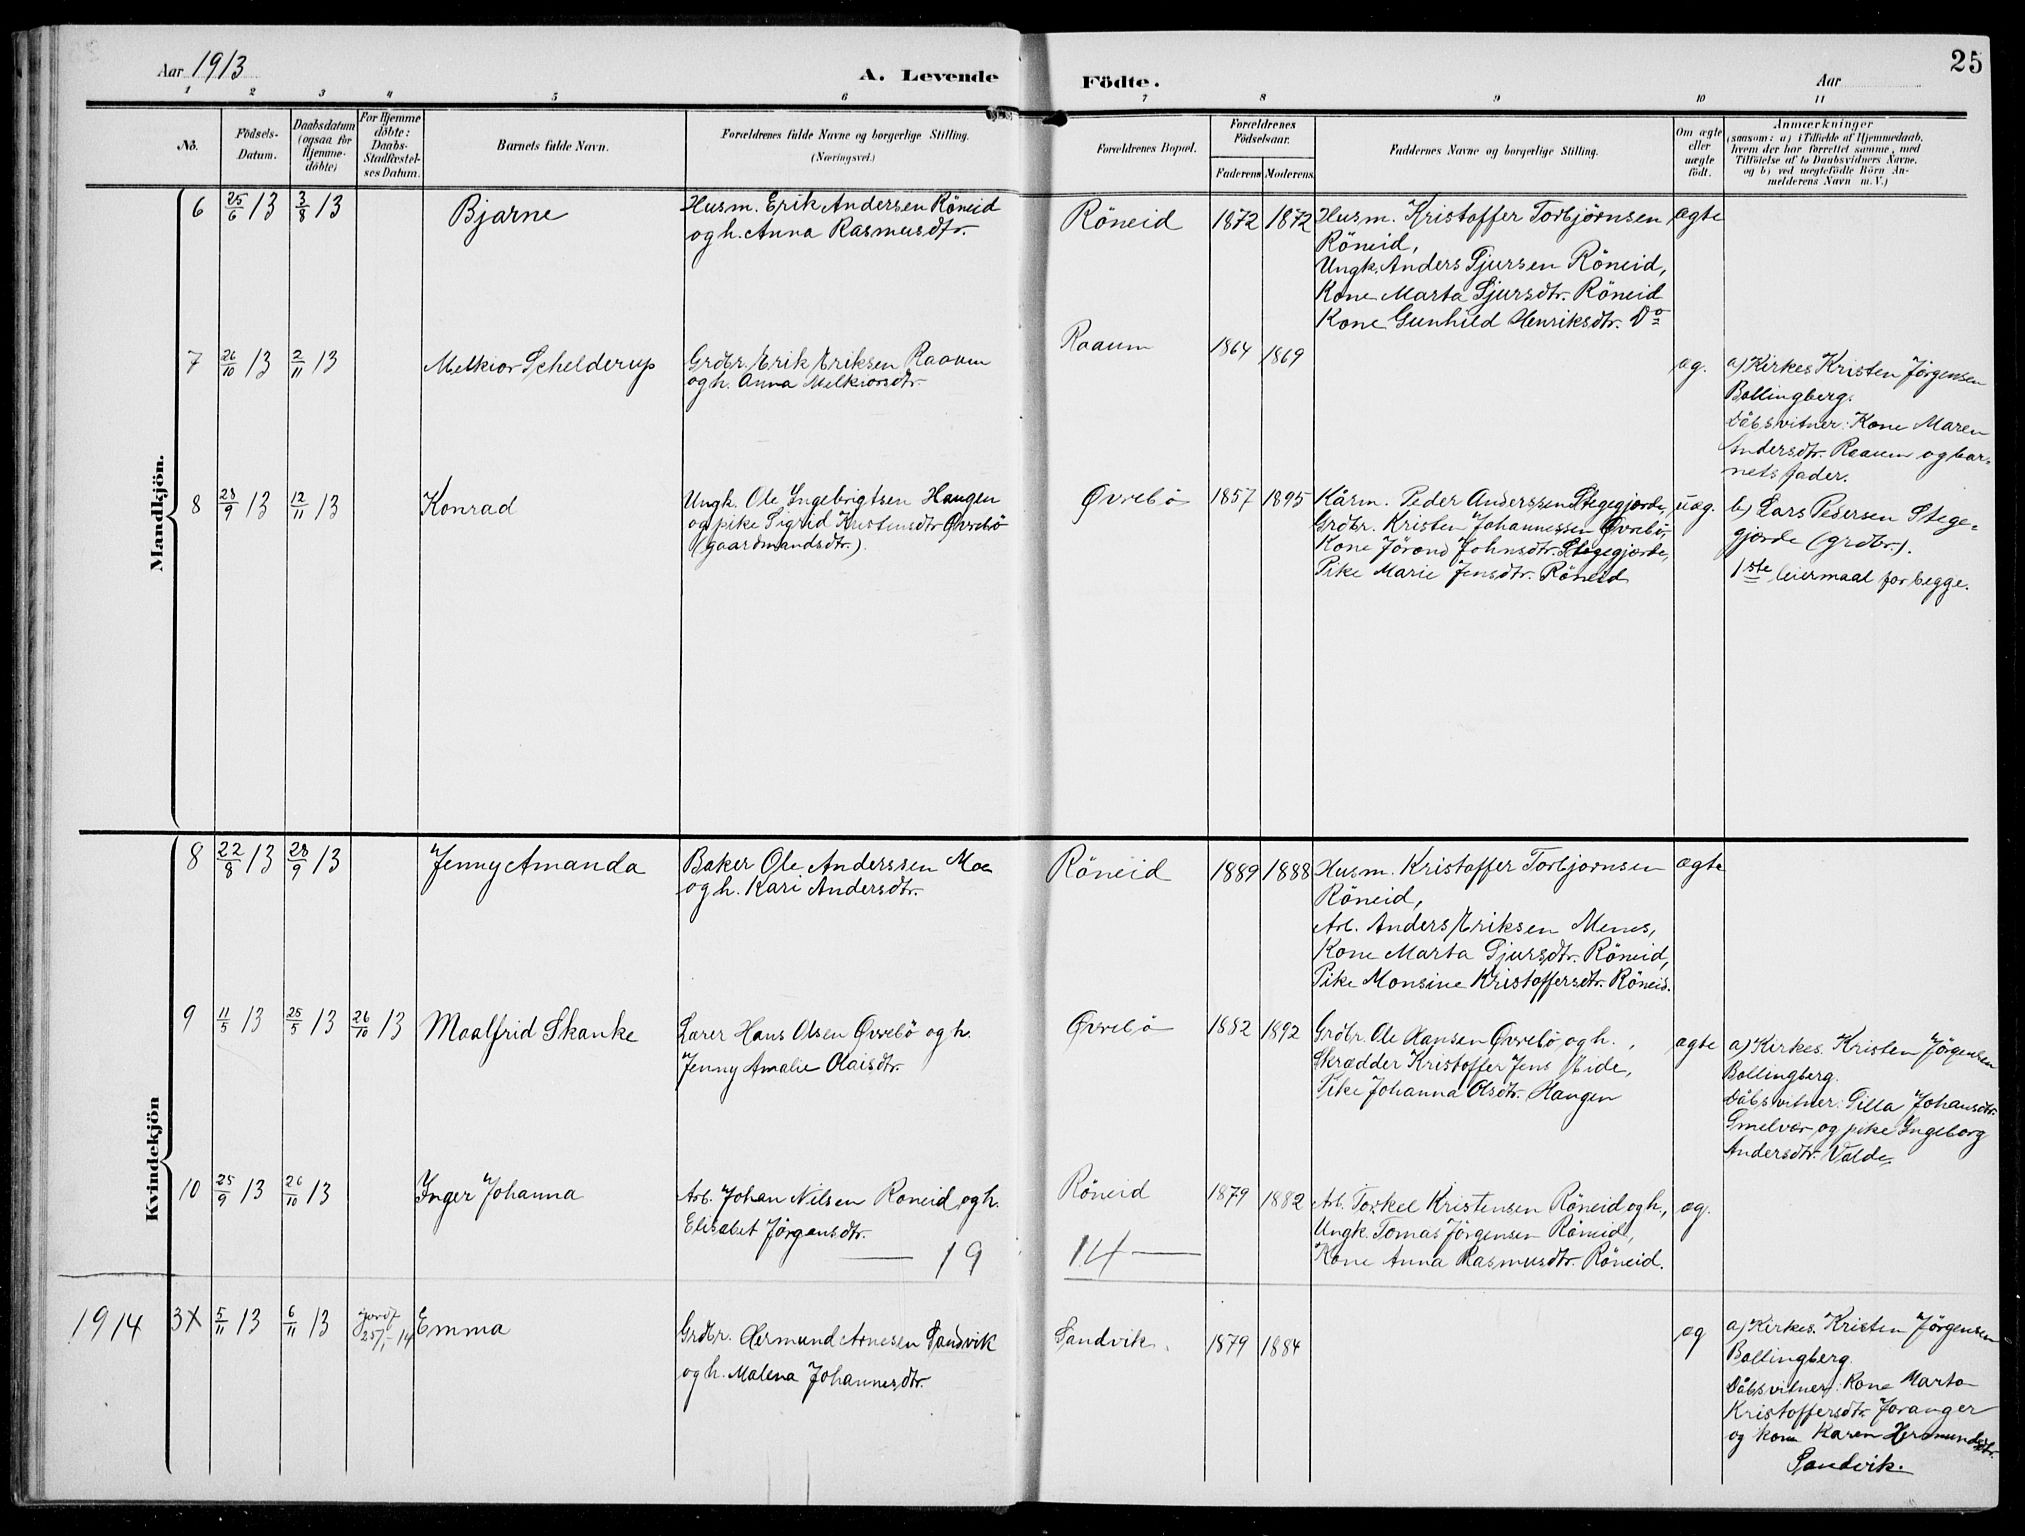 25
Aar 1913
A. Levende
Födte.
Aar
1 2 3 4 5 6 7 8 9 10 11
No.
Födsels-
Datum.
Daabsdatum
(ogsaa for
Hjemme-
döbte)
For Hjemme
döbte:
Daabs-
Stadfæstel-
ses Datum.
Barnets fulde Navn.
Forældrenes fulde Navne og borgerlige Stilling.
(Næringsvei.)
Forældrenes Bopæl.
Forældrenes
Födselsaar.
Faderens Moderens
Faddernes Navne og borgerlige Stilling.
Om ægte
eller
uægte
födt.
Anmærkninger
(saasom: a) i Tilfælde af Hjemmedaab,
hvem der har forrettet samme, med
Tilföielse af to Daabsvidners Navne,
og b) ved uægtefödte Börn An-
melderens Navn m. V.)
Mandkjön.
6 25/6 13 3/8 13 Bjarne
Husm. Erik Andersen Röneid
og h. Anna Rasmusdtr.
Röneid 1872 1872
Husm. Kristoffer Torbjørnsen
Röneid,
Ungk. Anders Sjursen Röneid,
Kone Marta Sjursdtr. Röneid
Kone Gunhild Henriksdtr. Do
ægte
7 26/10 13 2/11 13 Melkior Schelderup
Grdbr. Erik Eriksen Raaum
og h. Anna Melkiorsdtr.
Raaum 1864 1869
æg.
a) Kirkes Kristen Jørgensen
Bollingberg.
Dåbsvitner: Kone Maren
Andersdtr. Raaum og bar-
nets fader.
8 28/9 13 12/11 13 Konrad
Ungk. Ole Ingebrigtsen Haugen
og pike Sigrid Kristensdtr Øvrebö
(gaardmandsdtr.)
Øvrebö 1857 1895
Kårm. Peder Anderssen Stegegjærde,
Grdbr. Kristen Johannessen Øvrebö,
Kone Jörond Johnsdtr. Stegegjærde,
Pike Marie Jensdtr. Röneid
uæg.
b) Lars Pedersen Stege-
gjærde (grdbr.).
1ste leiermaal for begge.
Kvindekjön
8 22/8 13 28/9 13 Jenny Amanda
Baker Ole Anderssen Moe
og h. Kari Andersdtr.
Röneid 1889 1888
Husm. Kristoffer Torbjørnsen
Röneid,
Arb. Anders Eriksen Menes,
Kone Marta Sjursdtr. Röneid,
Pike Monsine Kristoffersdtr. Röneid.
ægte
9 11/5 13 25/5 13 26/10 13 Maalfrid Skanke
Lærer Hans Olsen Øvrebö og h.
Jenny Amalie Olaisdtr.
Øvrebö 1882 1892
Grdbr. Ole Hansen Øvrebö og h.,
Skrædder Kristoffer Jens Eide,
Pike Johanna Olsdtr. Haugen
ægte
a) Kirkes. Kristen Jørgensen
Bollingberg.
Dåbsvitner: Gilla Johansdtr.
Smelvær og pike Ingeborg
Andersdtr. Valde.
10 25/9 13 26/10 13 Inger Johanna
Arb. Johan Nilsen Röneid og h.
Elisabet Jørgensdtr.
Röneid 1879 1882
Arb. Torkel Kristensen Röneid og h.,
Ungk. Tomas Jørgensen Röneid,
Kone Anna Rasmusdtr. Röneid.
æg.
19 14
1914 3X 5/11 13 6/11 13 jordf 25/1-14 Emma
Grdbr. Hermund Arnesen Sandvik
og h. Malena Johannesdtr.
Sandvik. 1879 1884
æg
a) Kirkes. Kristen Jørgensen
Bollingberg.
Dåbsvitner: Kone Marta
Kristoffersdtr. Joranger
og kone Karen Hermundsdtr.
Sandvik.